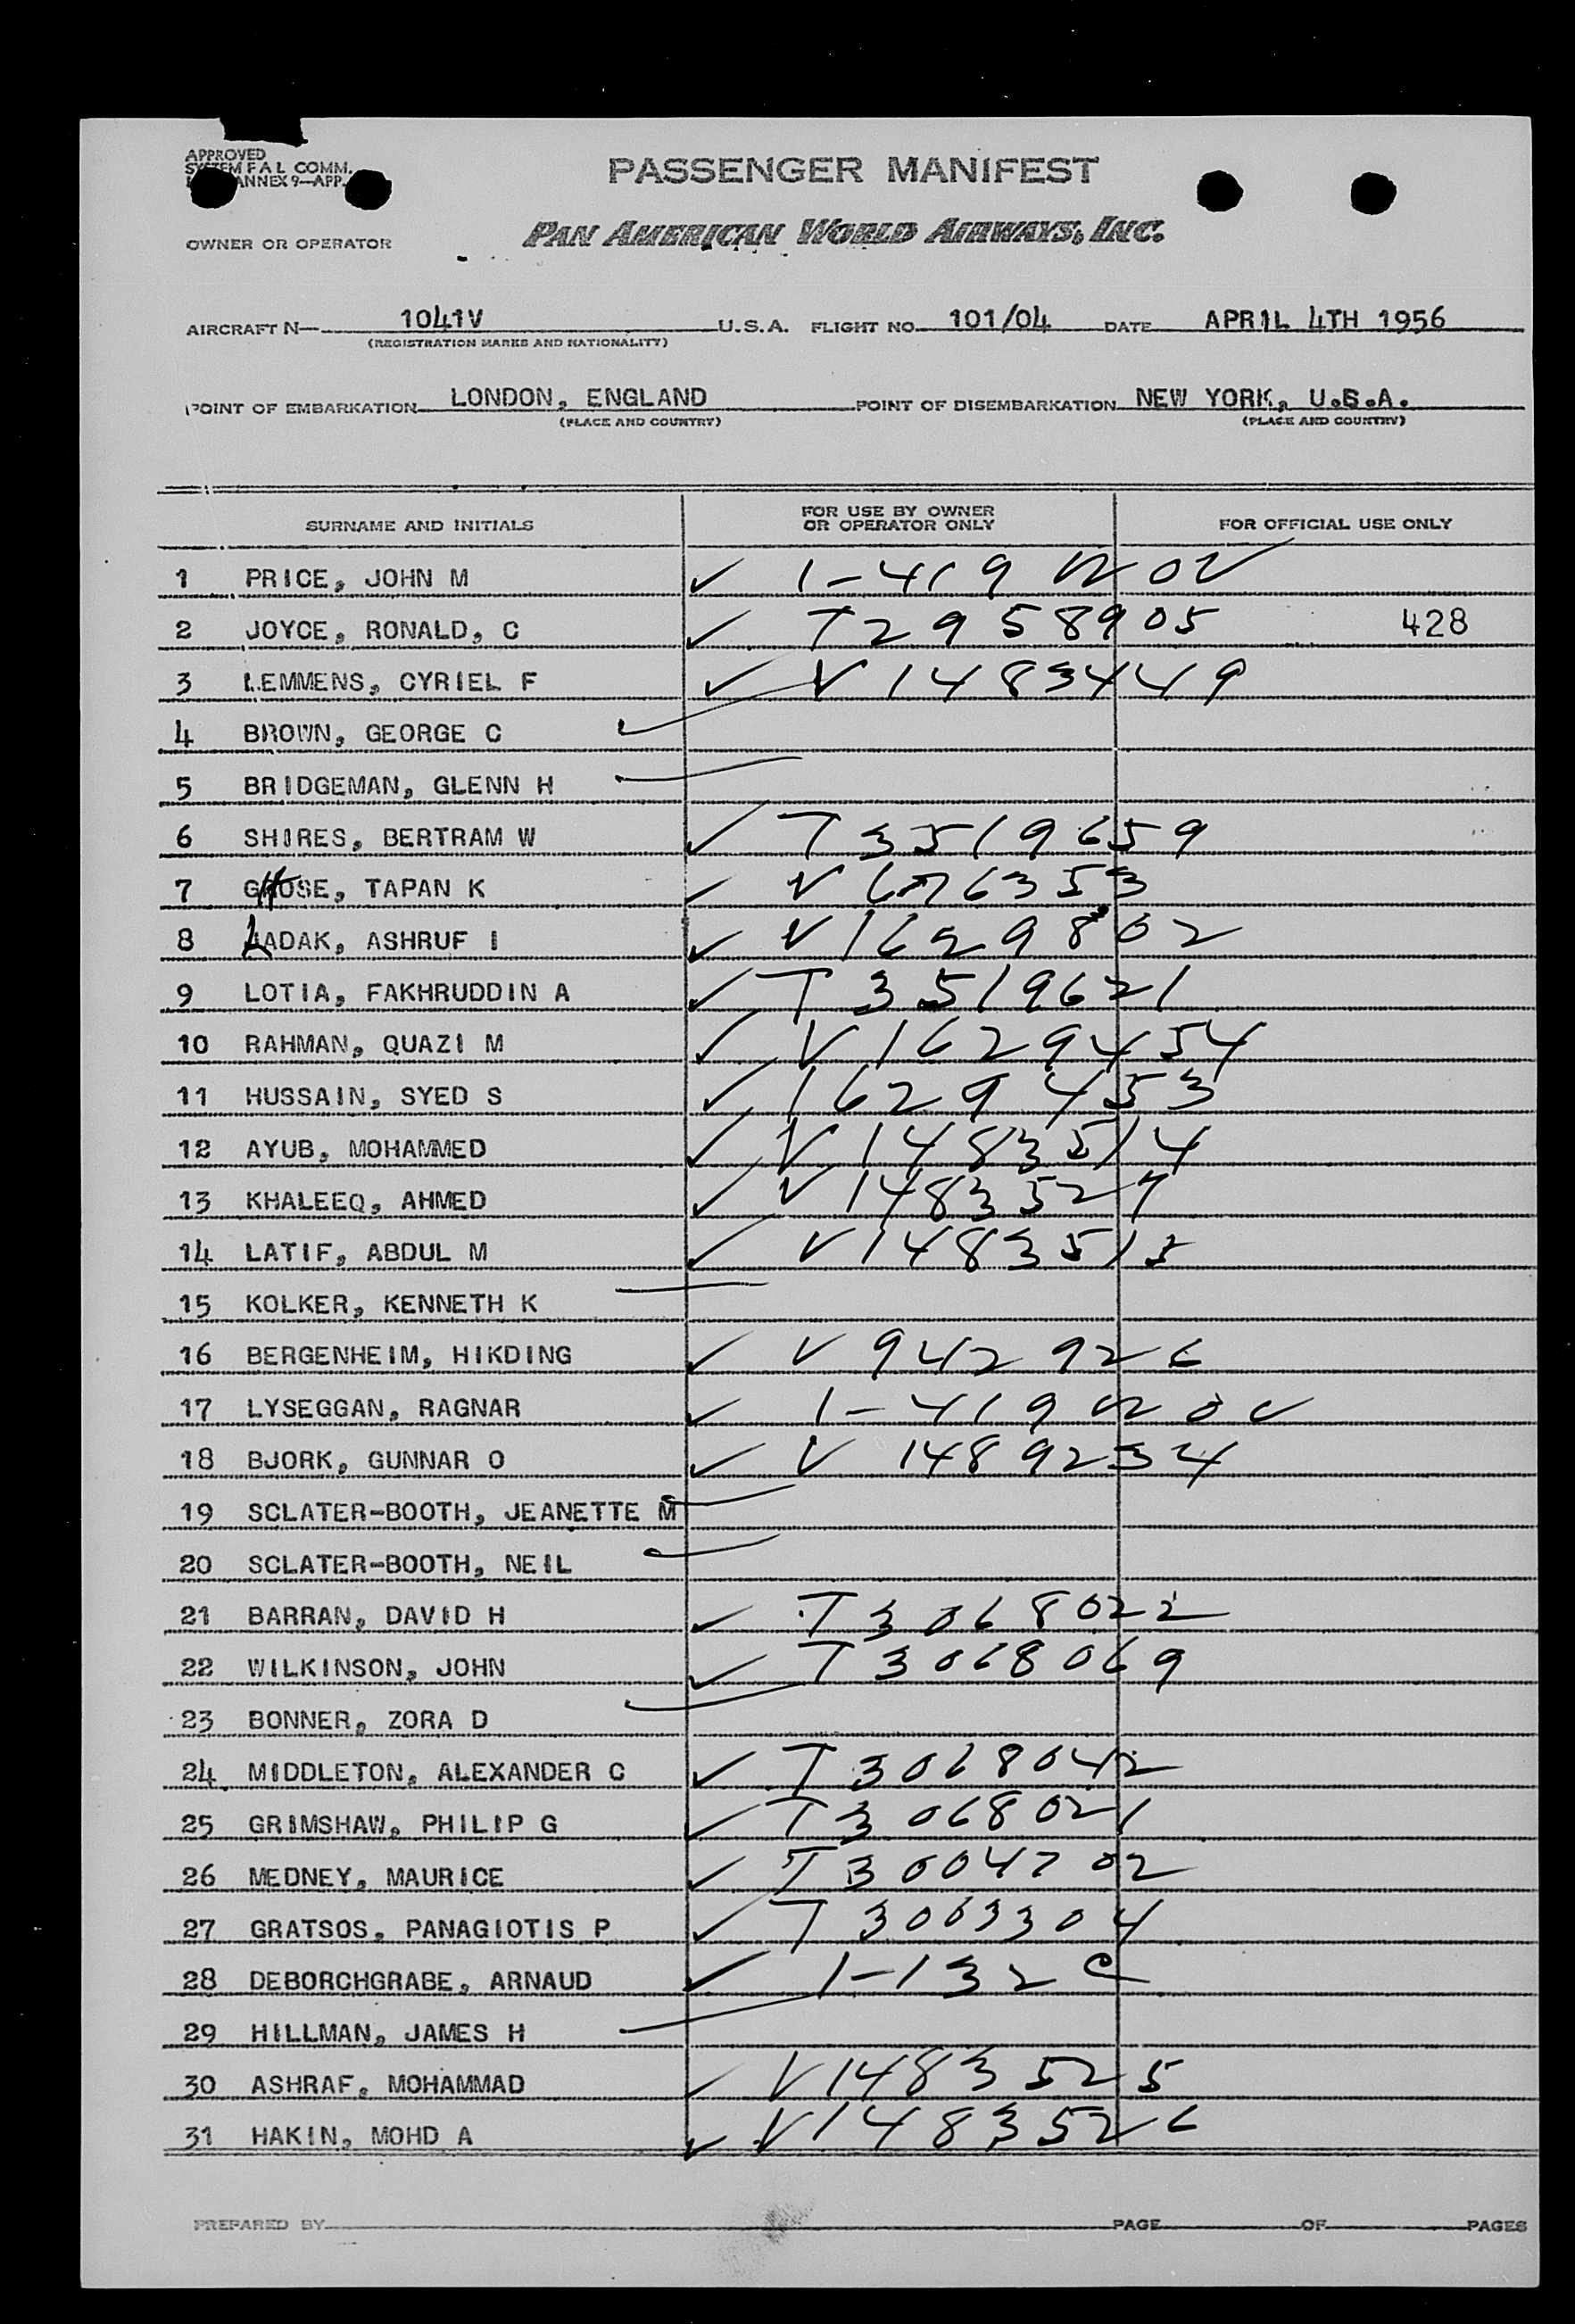 APPROVED
SYSTEM F A L COMM.
ANNEX 9—APP.
PASSENGER MANIFEST
OWNER OR OPERATOR PAN AMERICAN WORLD AIRWAYS, INC.
AIRCRAFT N— 1041V U.S.A. FLIGHT NO. 101/04 DATE APRIL 4TH 1956
(REGISTRATION MARKS AND NATIONALITY)
POINT OF EMBARKATION LONDON, ENGLAND POINT OF DISEMBARKATION NEW YORK, U.S.A.
(PLACE AND COUNTRY) (PLACE AND COUNTRY)
SURNAME AND INITIALS FOR USE BY OWNER OR OPERATOR ONLY FOR OFFICIAL USE ONLY
1 PRICE, JOHN M ✓ 1-419
2 JOYCE, RONALD, C ✓ T2958905 428
3 LEMMENS, CYRIEL F ✓ V1483449
4 BROWN, GEORGE C ✓
5 BRIDGEMAN, GLENN H
6 SHIRES, BERTRAM W ✓ T3519659
7 GHOSE, TAPAN K ✓ V676353
8 LADAK, ASHRUF I ✓ V1629802
9 LOTIA, FAKHRUDDIN A ✓ T3519621
10 RAHMAN, QUAZI M ✓ V1629454
11 HUSSAIN, SYED S ✓ 1629453
12 AYUB, MOHAMMED ✓ V1483514
13 KHALEEQ, AHMED ✓ V1483527
14 LATIF, ABDUL M ✓ V1483513
15 KOLKER, KENNETH K
16 BERGENHEIM, HIKDING ✓ V942926
17 LYSEGGAN, RAGNAR ✓ 1-419
18 BJORK, GUNNAR O ✓ V1489234
19 SCLATER-BOOTH, JEANETTE M
20 SCLATER-BOOTH, NEIL
21 BARRAN, DAVID H ✓ T3068022
22 WILKINSON, JOHN ✓ T3068069
23 BONNER, ZORA D
24 MIDDLETON, ALEXANDER C ✓ T3068042
25 GRIMSHAW, PHILIP G ✓ T3068021
26 MEDNEY, MAURICE ✓ T3004702
27 GRATSOS, PANAGIOTIS P ✓ T3063304
28 DEBORCHGRABE, ARNAUD ✓ 1-132 C
29 HILLMAN, JAMES H
30 ASHRAF, MOHAMMAD ✓ V1483525
31 HAKIN, MOHD A ✓ V1483526
PREPARED BY PAGE OF PAGES